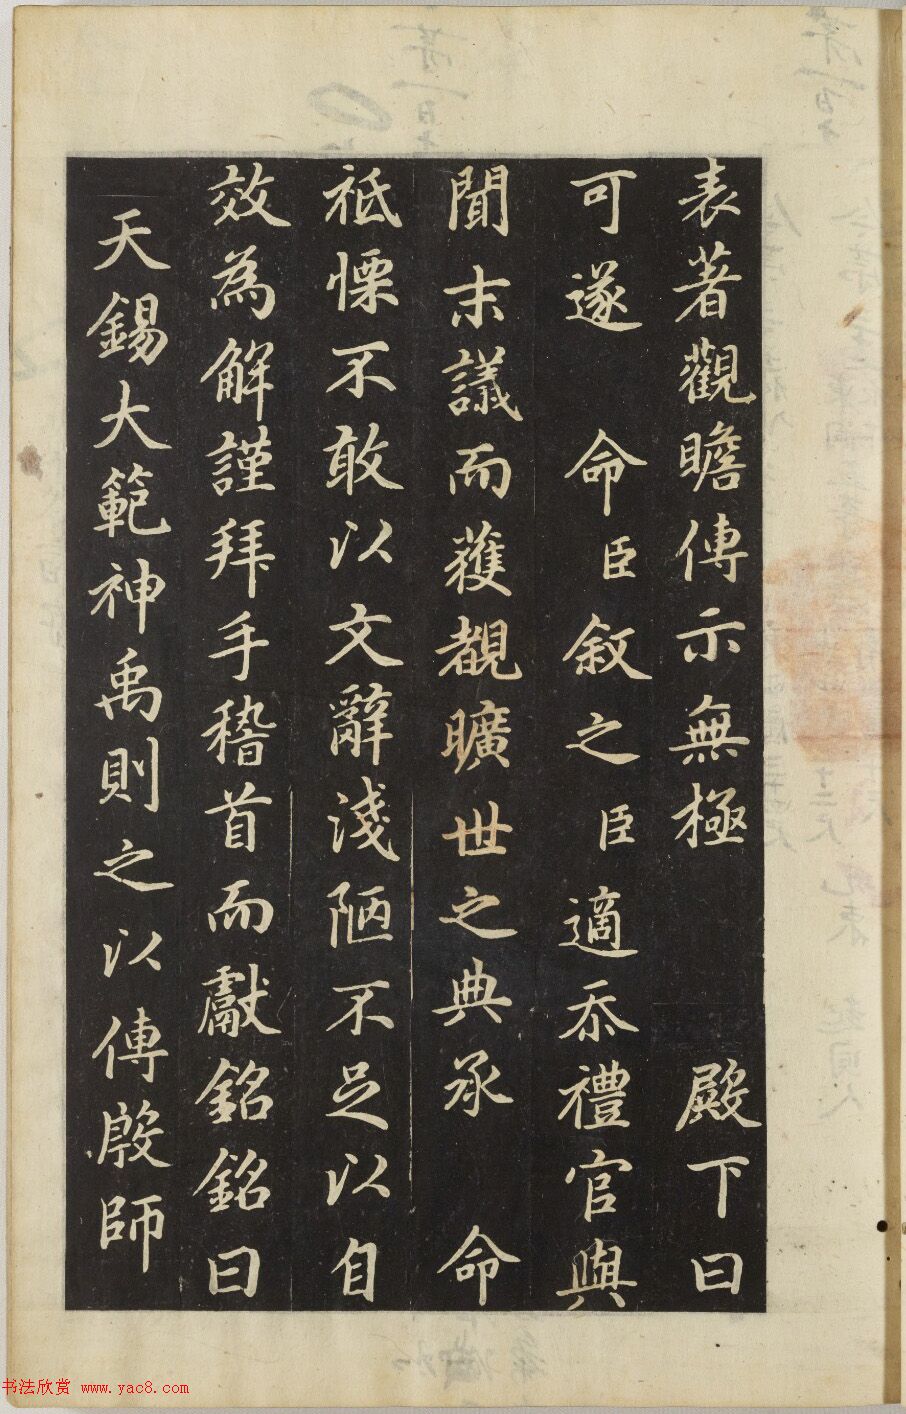 表著觀瞻傳示無極 殿下曰
可遂 命臣敘之臣適忝禮官與
聞末議而獲覩曠世之典承 命
祗慄不敢以文辭淺陋不足以自
效為解謹拜手稽首而獻銘銘曰
天錫大範神禹則之以傳殷師
书法欣赏 www.yac8.com